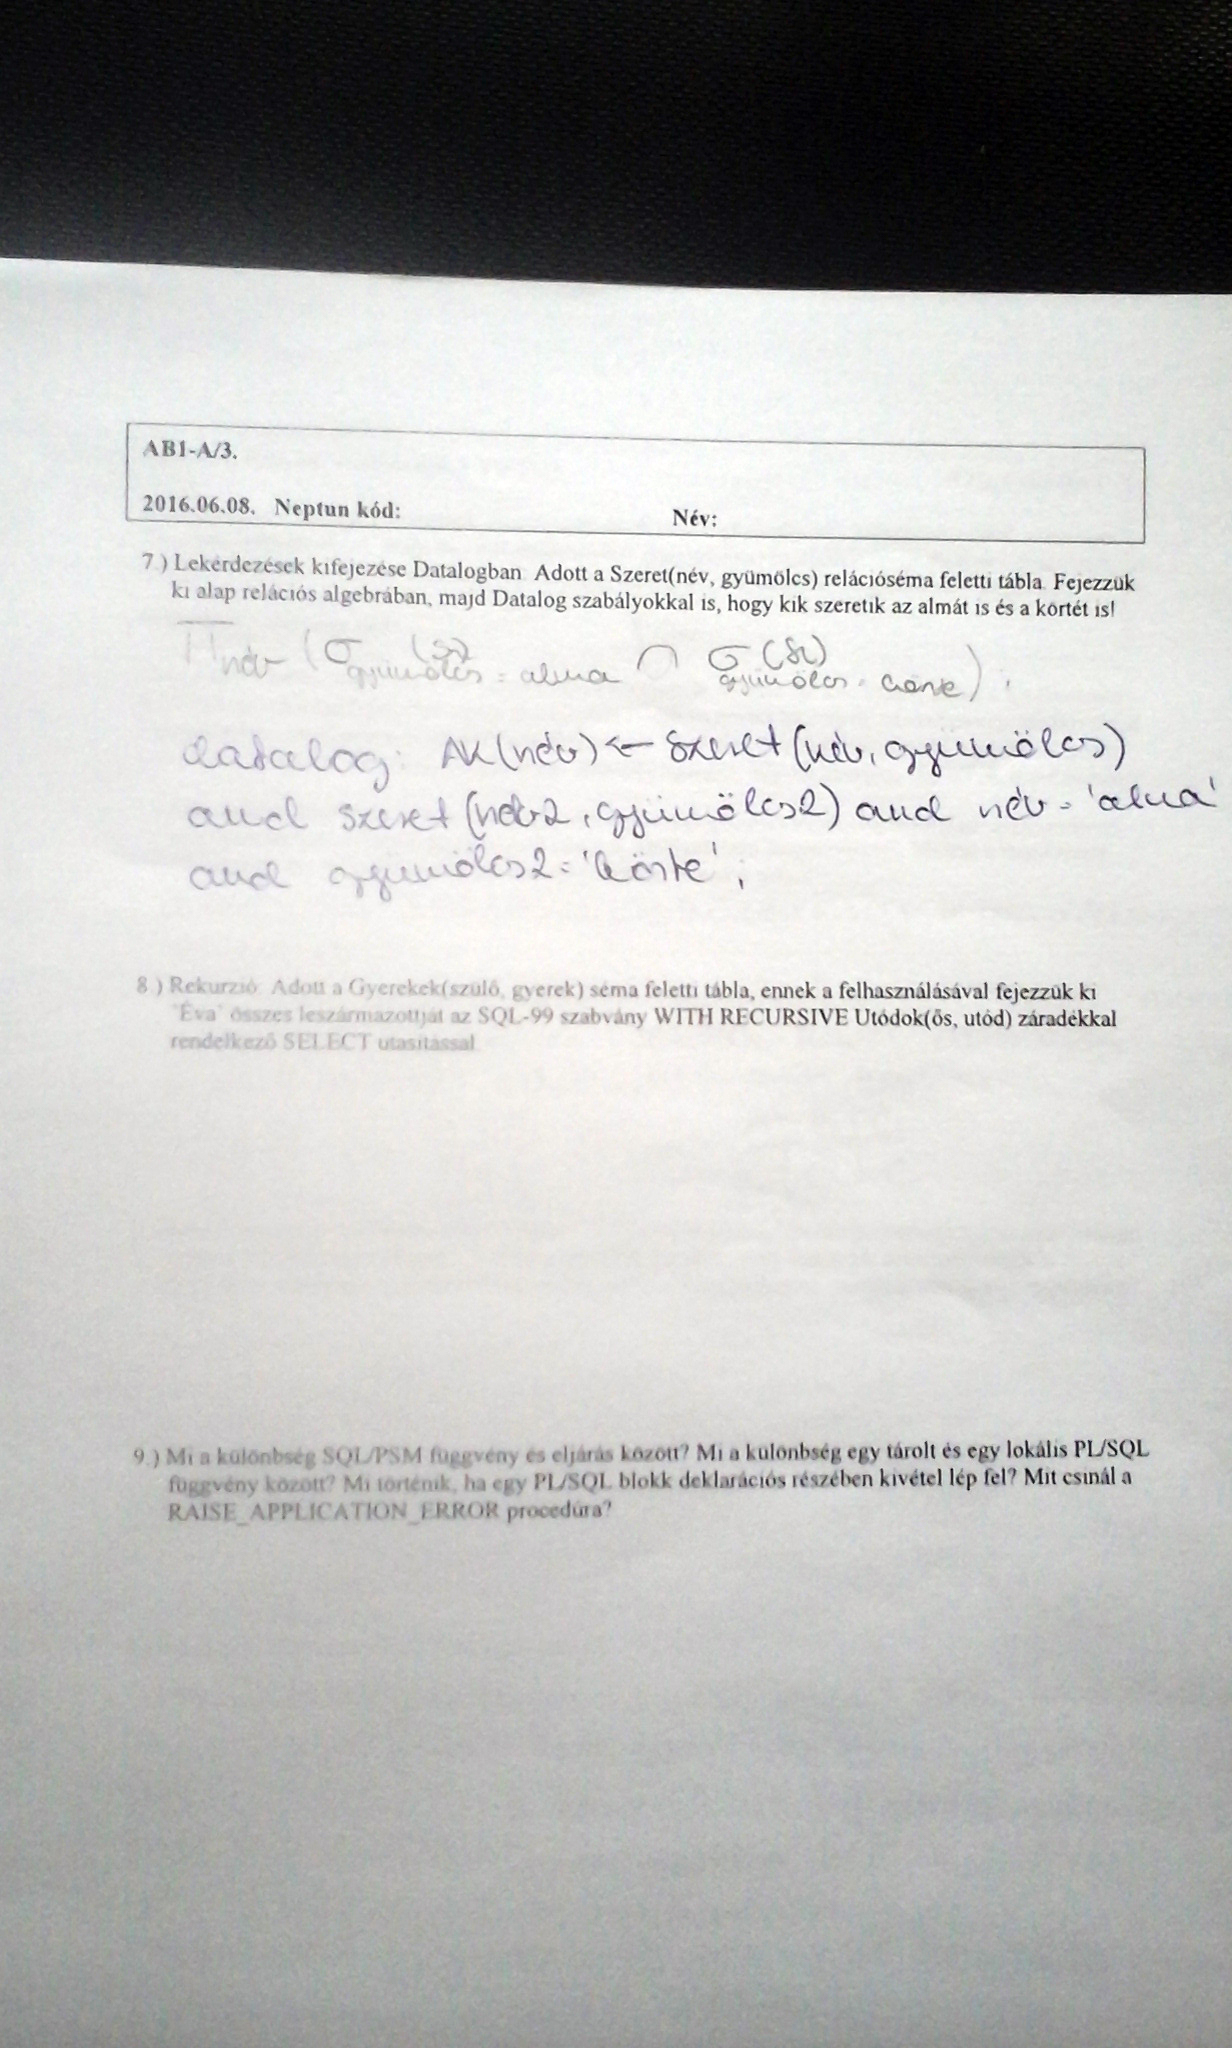 AB1-A/3.
2016.06.08. Neptun kód: Név:
7.) Lekérdezések kifejezése Datalogban. Adott a Szeret(név, gyümölcs) relációséma feletti tábla. Fejezzük
ki alap relációs algebrában, majd Datalog szabályokkal is, hogy kik szeretik az almát is és a körtét is!
Π név (σ gyümölcs = alma (Sz) ∩ σ gyümölcs = körte (Sz)) ;
datalog: AK(név) ← Szeret(név, gyümölcs)
and szeret(név2, gyümölcs2) and név = 'alma'
and gyümölcs2 = 'körte' ;
8.) Rekurzió: Adott a Gyerekek(szülő, gyerek) séma feletti tábla, ennek a felhasználásával fejezzük ki
'Éva' összes leszármazottját az SQL-99 szabvány WITH RECURSIVE Utódok(ős, utód) záradékkal
rendelkező SELECT utasítással.
9.) Mi a különbség SQL/PSM függvény és eljárás között? Mi a különbség egy tárolt és egy lokális PL/SQL
függvény között? Mi történik, ha egy PL/SQL blokk deklarációs részében kivétel lép fel? Mit csinál a
RAISE_APPLICATION_ERROR procedúra?